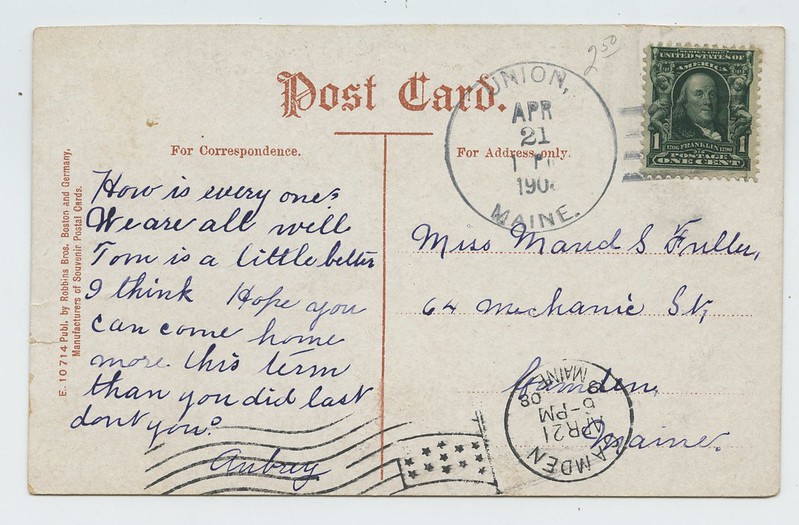 Post Card.
For Correspondence.
For Address only.
E. 10714 Publ. by Robbins Bros. Boston and Germany,
Manufacturers of Souvenir Postal Cards.
How is every one?
We are all well
Tom is a little better
I think Hope you
can come home
more this term
than you did last
dont you?
Aubrey
2 50
UNION,
APR
21
1 P
190
MAINE.
SERIES 1902
UNITED STATES OF
AMERICA
1 1
1706 FRANKLIN 1790
POSTAGE
ONE CENT
Miss Maud S Fuller,
64 Mechanic St,
Camden,
Maine.
CAMDEN
APR 21
5-PM
08
MAINE